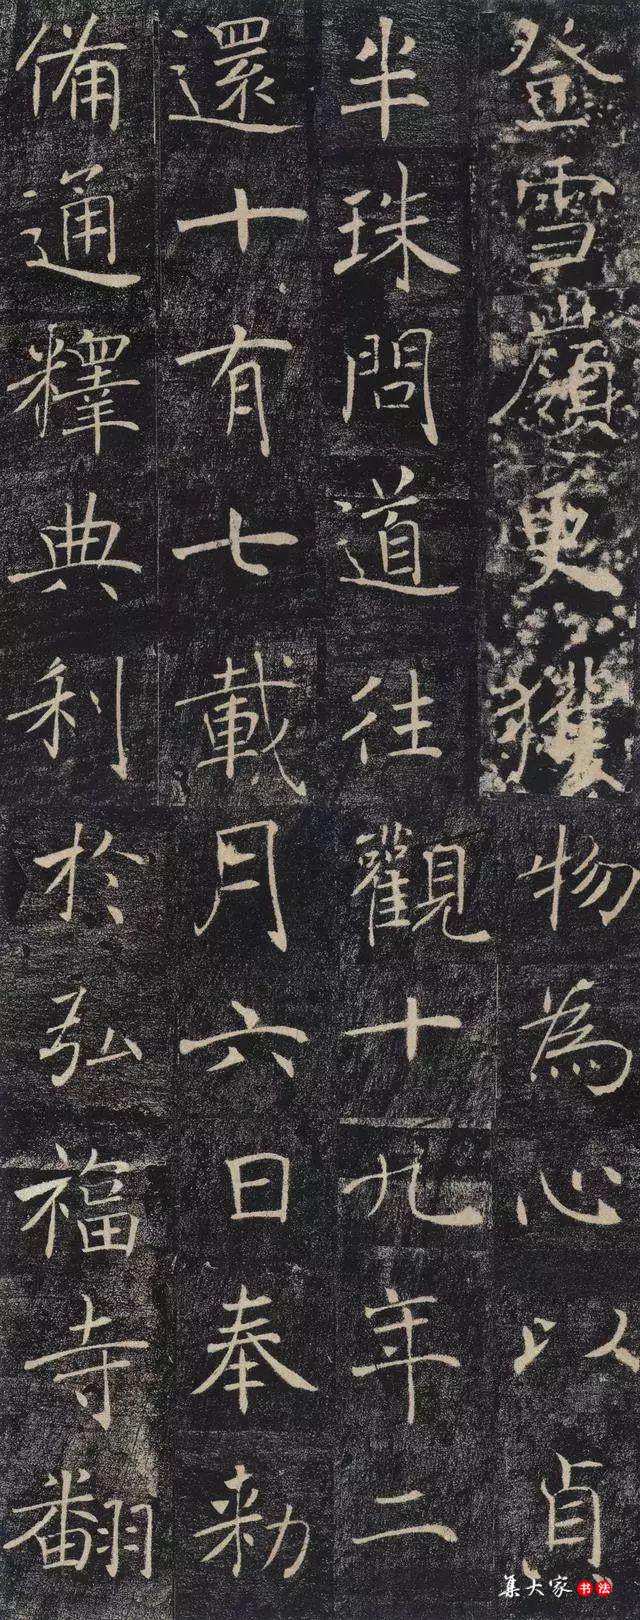 登雪嶺更獲
半珠問道往
還十有七載
備通釋典利
物為心以貞
觀十九年二
月六日奉勅
於弘福寺翻
集大家书法